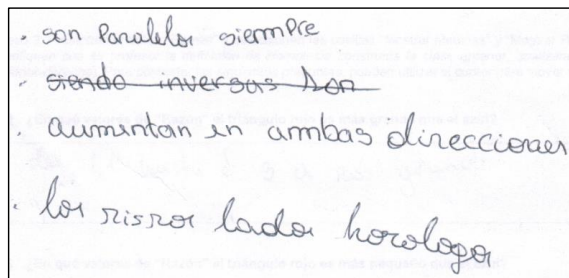 . son Paralelos siempre
. siendo inversas son
. aumentan en ambas direcciones
. los lados horologos